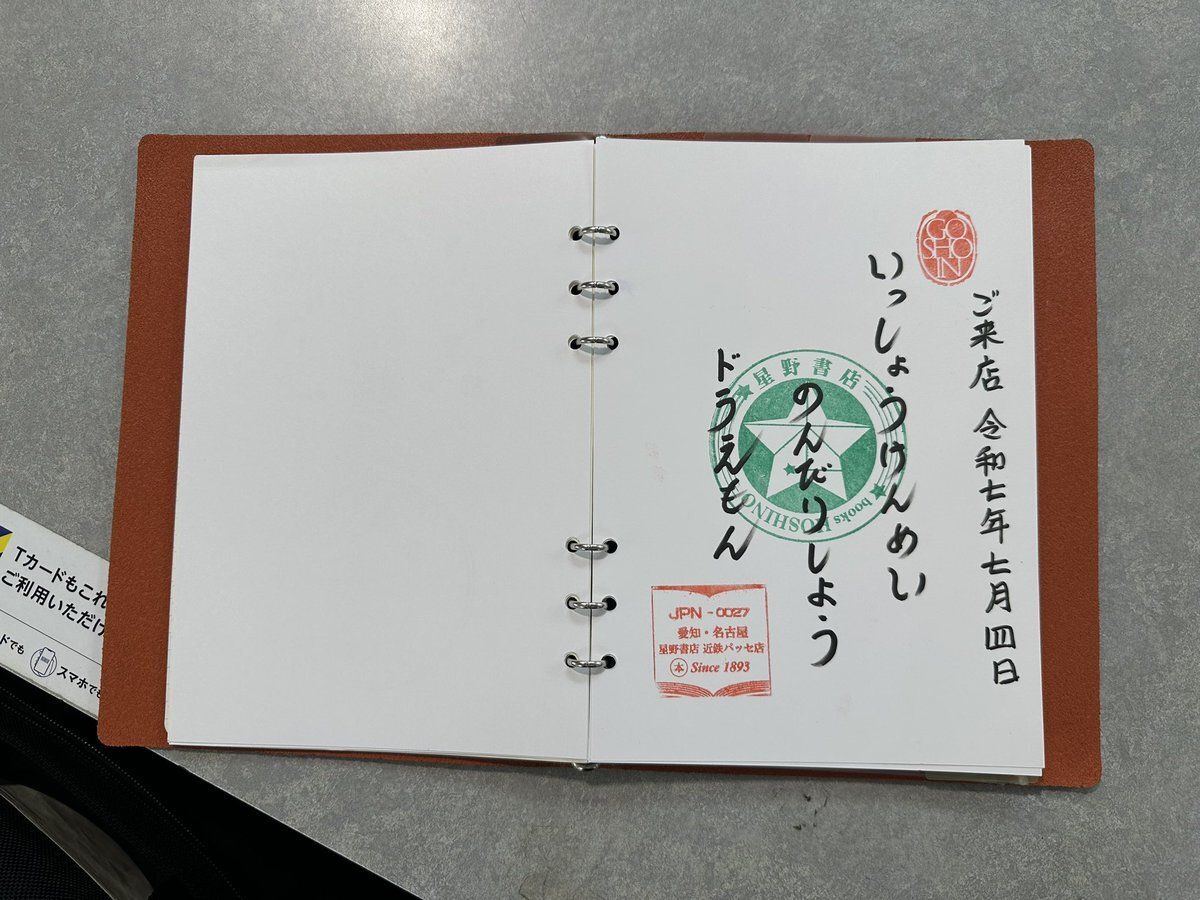 GO
SHO
IN
ご来店 令和七年七月四日
いっしょうけんめい
のんだりしよう
ドラえもん
星野書店
books HOSHINO
JPN-0027
愛知・名古屋
星野書店 近鉄パッセ店
本 Since 1893
Tカードもこれ
ご利用いただけ
ドでも
スマホでも